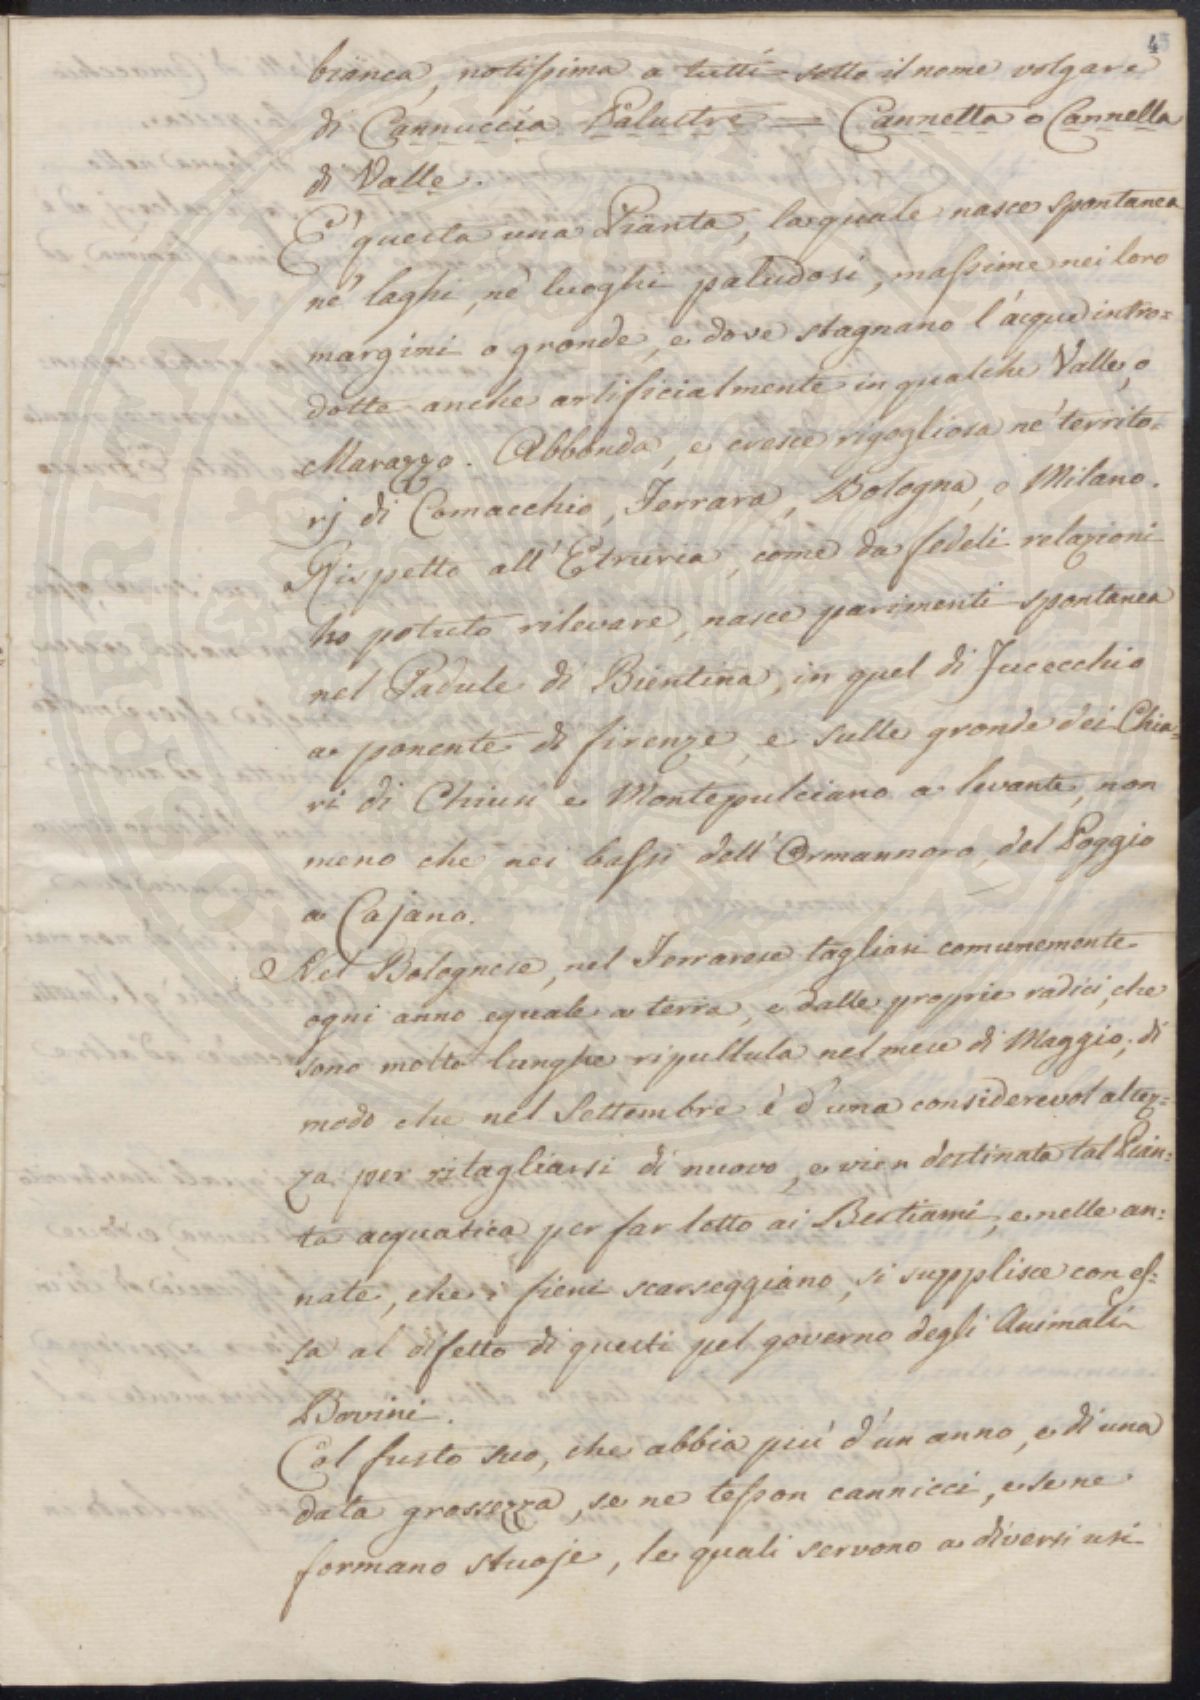 43
bianca, notissima a tutti sotto il nome volgare
di Cannuccia Palustre = Cannetta o Cannella
di Valle.
E' questa una Pianta, la quale nasce spontanea
ne' laghi, ne' luoghi paludosi, massime nei loro
margini o gronde, e dove stagnano l'acque intro=
dotte anche artificialmente in qualche Valle, o
Marazzo. Abbonda, e cresce rigogliosa ne' territo=
rj di Comacchio, Ferrara, Bologna, e Milano.
Rispetto all'Etruria, come da fedeli relazioni
ho potuto rilevare, nasce parimenti spontanea
nel Padule di Bientina, in quel di Fucecchio
a ponente di firenze, e sulle gronde dei Chia=
ri di Chiusi e Montepulciano a levante, non
meno che nei bassi dell'Ormannoro, del Poggio
a Cajano.
Nel Bolognese, nel Ferrarese tagliasi comunemente
ogni anno eguale a terra, e dalle proprie radici, che
sono molto lunghe ripullula nel mese di Maggio; di
modo che nel Settembre è d'una considerevol altez=
za per ritagliarsi di nuovo, e vien destinata tal Pian=
ta acquatica per far letto ai Bestiami, e nelle an=
nate, che i fieni scarseggiano, si supplisce con es=
sa al difetto di questi pel governo degli Animali
Bovini.
Col fusto suo, che abbia più d'un anno, e di una
data grossezza, se ne tesson cannicci, e se ne
formano stuoje, le quali servono a diversi usi